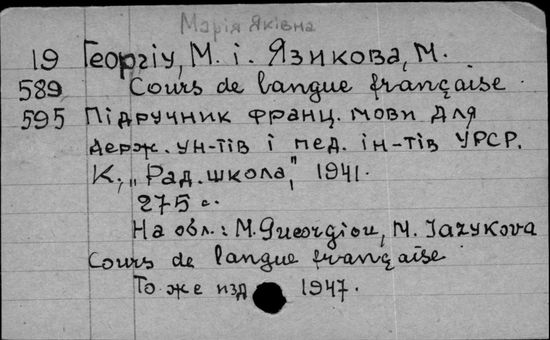 Марія Яківна
19 Георгіу, М. і. Язикова, М.
589 Cours de langue française.
595 Підручник франц. мови для
держ. ун-тів і пед. ін-тів УРСР.
К., „Рад. школа", 1941.
275 с.
На обл.: M. Gueorgiou, M. Jazykova
Cours de langue française
То же изд 1947.